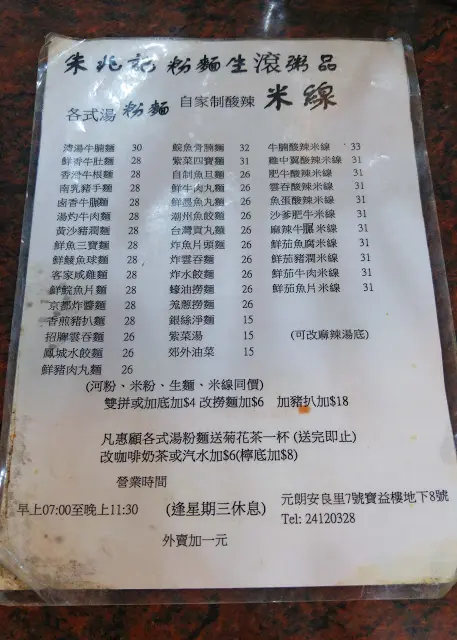 朱兆記粉麵生滾粥品
各式湯 粉麵 自家制酸辣 米線
清湯牛腩麵 30
鮮香牛肚麵 28
香滑牛根麵 28
南乳豬手麵 28
鹵香牛𦟌麵 28
湯灼牛肉麵 28
黃沙豬潤麵 28
鮮魚三寶麵 28
鮮鯪魚球麵 28
客家咸雞麵 28
鮮鯇魚片麵 28
京都炸醬麵 28
香煎豬扒麵 28
招牌雲吞麵 26
鳳城水餃麵 26
鮮豬肉丸麵 26
鯇魚骨腩麵 32
紫菜四寶麵 31
自制魚旦麵 26
鮮牛肉丸麵 26
鮮墨魚丸麵 26
潮州魚餃麵 26
台灣貢丸麵 26
炸魚片頭麵 26
炸雲吞麵 26
炸水餃麵 26
蠔油撈麵 26
蔥撈麵 26
銀絲淨麵 15
紫菜湯 15
郊外油菜 15
牛腩酸辣米線 33
雞中翼酸辣米線 31
肥牛酸辣米線 31
雲吞酸辣米線 31
魚蛋酸辣米線 31
沙爹肥牛米線 31
麻辣牛𦟌米線 31
鮮茄魚腐米線 31
鮮茄豬潤米線 31
鮮茄牛肉米線 31
鮮茄魚片米線 31
(可改麻辣湯底)
(河粉、米粉、生麵、米線同價)
雙拼或加底加$4 改撈麵加$6 加豬扒加$18
凡惠顧各式湯粉麵送菊花茶一杯 (送完即止)
改咖啡奶茶或汽水加$6(檸底加$8)
營業時間
早上07:00至晚上11:30 (逢星期三休息)
元朗安良里7號寶益樓地下8號
Tel: 24120328
外賣加一元